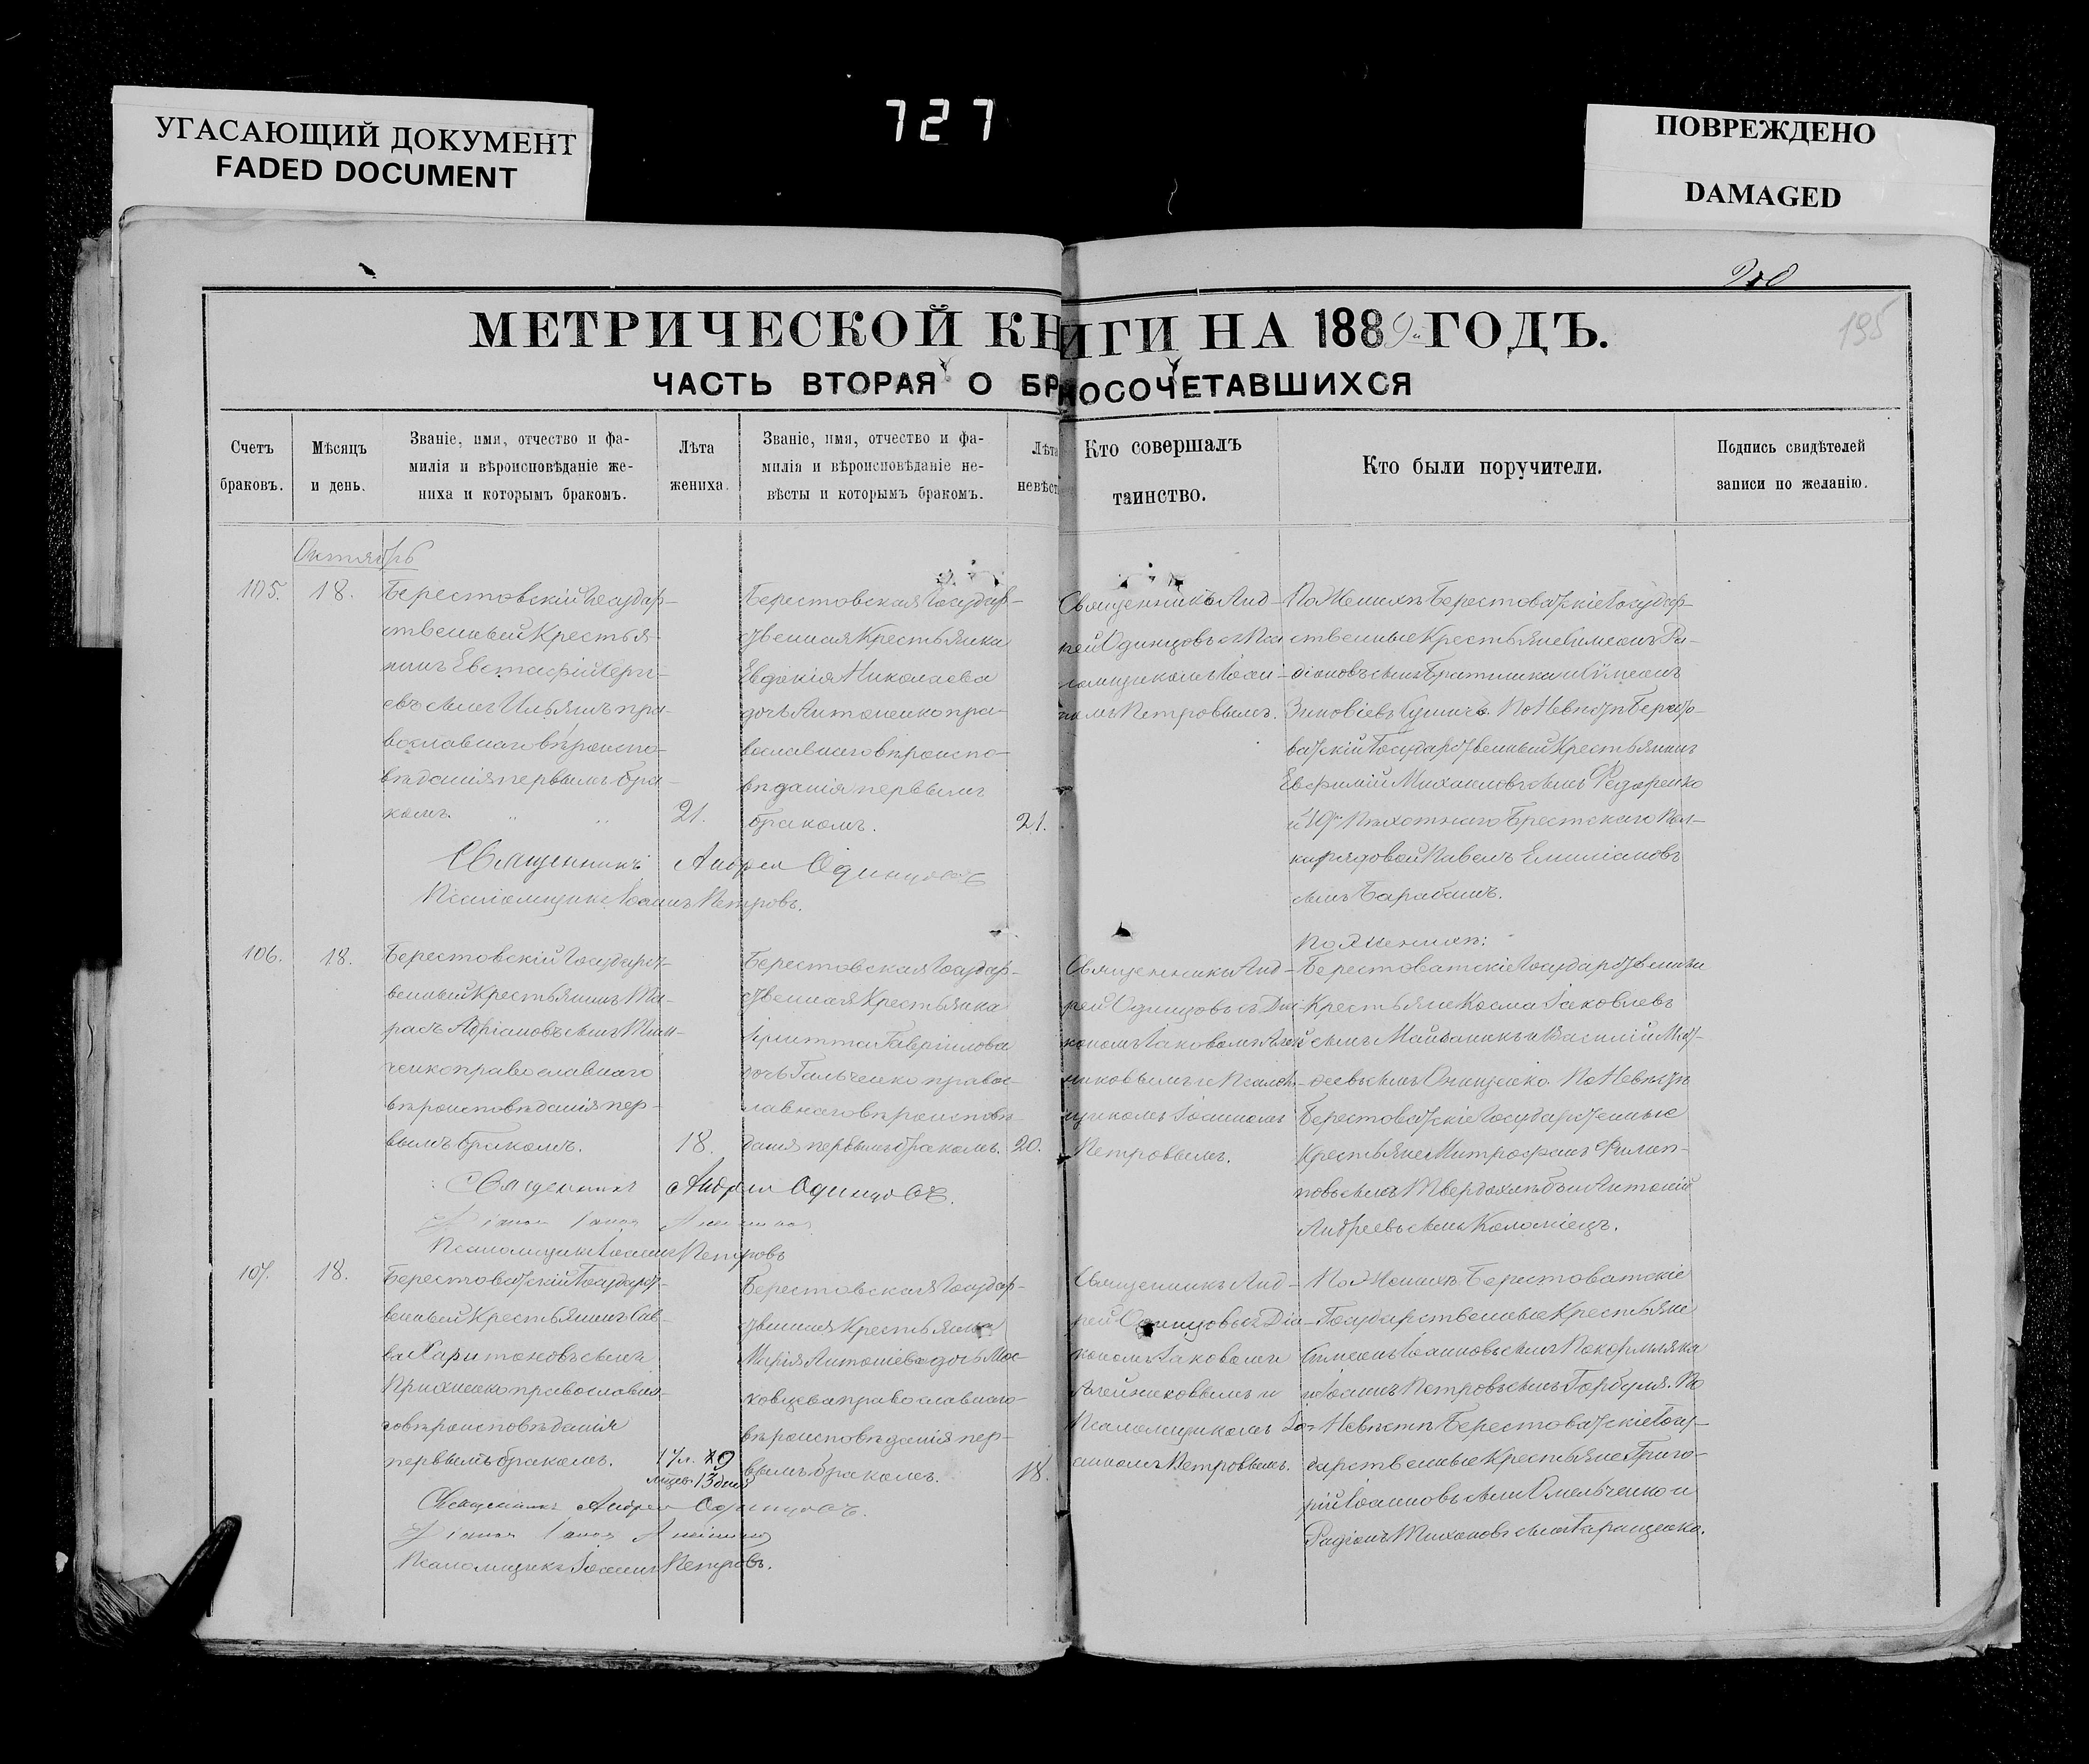 УГАСАЮЩИЙ ДОКУМЕНТ
FADED DOCUMENT
727
ПОВРЕЖДЕНО
DAMAGED
195
МЕТРИЧЕСКОЙ КНИГИ НА 1889 ГОДЪ.
ЧАСТЬ ВТОРАЯ О БРАКОСОЧЕТАВШИХСЯ
Счетъ
браковъ.
Мѣсяцъ
и день.
Званіе, имя, отчество и фа-
милія и вѣроисповѣданіе же-
ниха и которымъ бракомъ.
Лѣта
жениха.
Званіе, имя, отчество и фа-
милія и вѣроисповѣданіе не-
вѣсты и которымъ бракомъ.
Лѣта
невѣсты
Кто совершалъ
таинство.
Кто были поручители.
Подпись свидѣтелей
записи по желанію.
Октябрь
105.
18.
Берестовскій Государ-
ственный Крестья-
нинъ Евстафій Серги-
евъ сынъ Ильяшъ пра-
вославнаго вѣроиспо-
вѣданія первымъ бра-
комъ.
21.
Берестовская Государ-
ственная Крестьянка
Евдокія Николаева
дочь Антоненко пра-
вославнаго вѣроиспо-
вѣданія первымъ
бракомъ.
21.
Священникъ Анд-
рей Одинцовъ съ Пса
ломщикомъ Іоан-
номъ Петровымъ.
По Женихѣ Берестоватскіе Государ-
ственные Крестьяне Симеонъ Ра-
діоновъ сынъ Братишка и Симеонъ
Зиновіевъ По Невѣстѣ Бересто-
ватскій Государственный Крестьянинъ
Евфимій Михаиловъ сынъ Федоренко
и 49го Пѣхотнаго Брестскаго Пол-
ка рядовой Павелъ Емиліановъ
сынъ Барабашъ.
Священникъ Андрей Одинцовъ
Псаломщикъ Іоаннъ Петровъ.
106.
18.
Берестовскій Государст-
венный Крестьянинъ Та-
расъ Адріановъ сынъ Тим-
ченко православнаго
вѣроисповѣданія пер-
вымъ бракомъ.
18.
Берестовская Государ-
ственная Крестьянка
Христина Гавріилова
дочь Гальченко правос-
лавнаго вѣроисповѣ-
данія первымъ бракомъ.
20.
Священникъ Анд-
рей Одинцовъ съ Діа-
кономъ Іаковомъ Алей
никовымъ и Псалом-
щикомъ Іоанномъ
Петровымъ.
По Женихѣ:
Берестоватскіе Государственные
Крестьяне Косма Іаковлевъ
сынъ Майданикъ и Василій Мат-
ѳеевъ сынъ Онищенко. По Невѣстѣ
Берестоватскіе Государственные
Крестьяне Митрофанъ Филип-
повъ сынъ Твердохлѣбъ и Антоній
Андреевъ сынъ Коломіецъ.
Священникъ Андрей Одинцовъ.
Псаломщикъ Іоаннъ Петровъ
107.
18.
Берестоватскій Государст-
венный Крестьянинъ Сав-
ва Харитоновъ сынъ
Прихненко православна-
го вѣроисповѣданія
первымъ бракомъ.
17 л. 9
мѣсяц. 13 дней
Берестовская Государ-
ственная Крестьянка
Марія Антоніева дочь Мос-
ковцева православнаго
вѣроисповѣданія пер-
вымъ бракомъ.
18.
Священникъ Анд-
рей Одинцовъ съ Діа-
кономъ Іаковомъ
Алейниковымъ и
Псаломщикомъ Іо-
анномъ Петровымъ.
По Женихѣ Берестоватскіе
Государственные Крестьяне
Симеонъ Іоанновъ сынъ Покормляка
и Іоаннъ Петровъ сынъ Горбуля. По
Невѣстѣ Берестоватскіе Госу-
дарственные Крестьяне Григо-
рій Іоанновъ сынъ Омельченко и
Радіонъ Тихоновъ сынъ Таращенко.
Священникъ Андрей Одинцовъ.
Псаломщикъ Іоаннъ Петровъ.